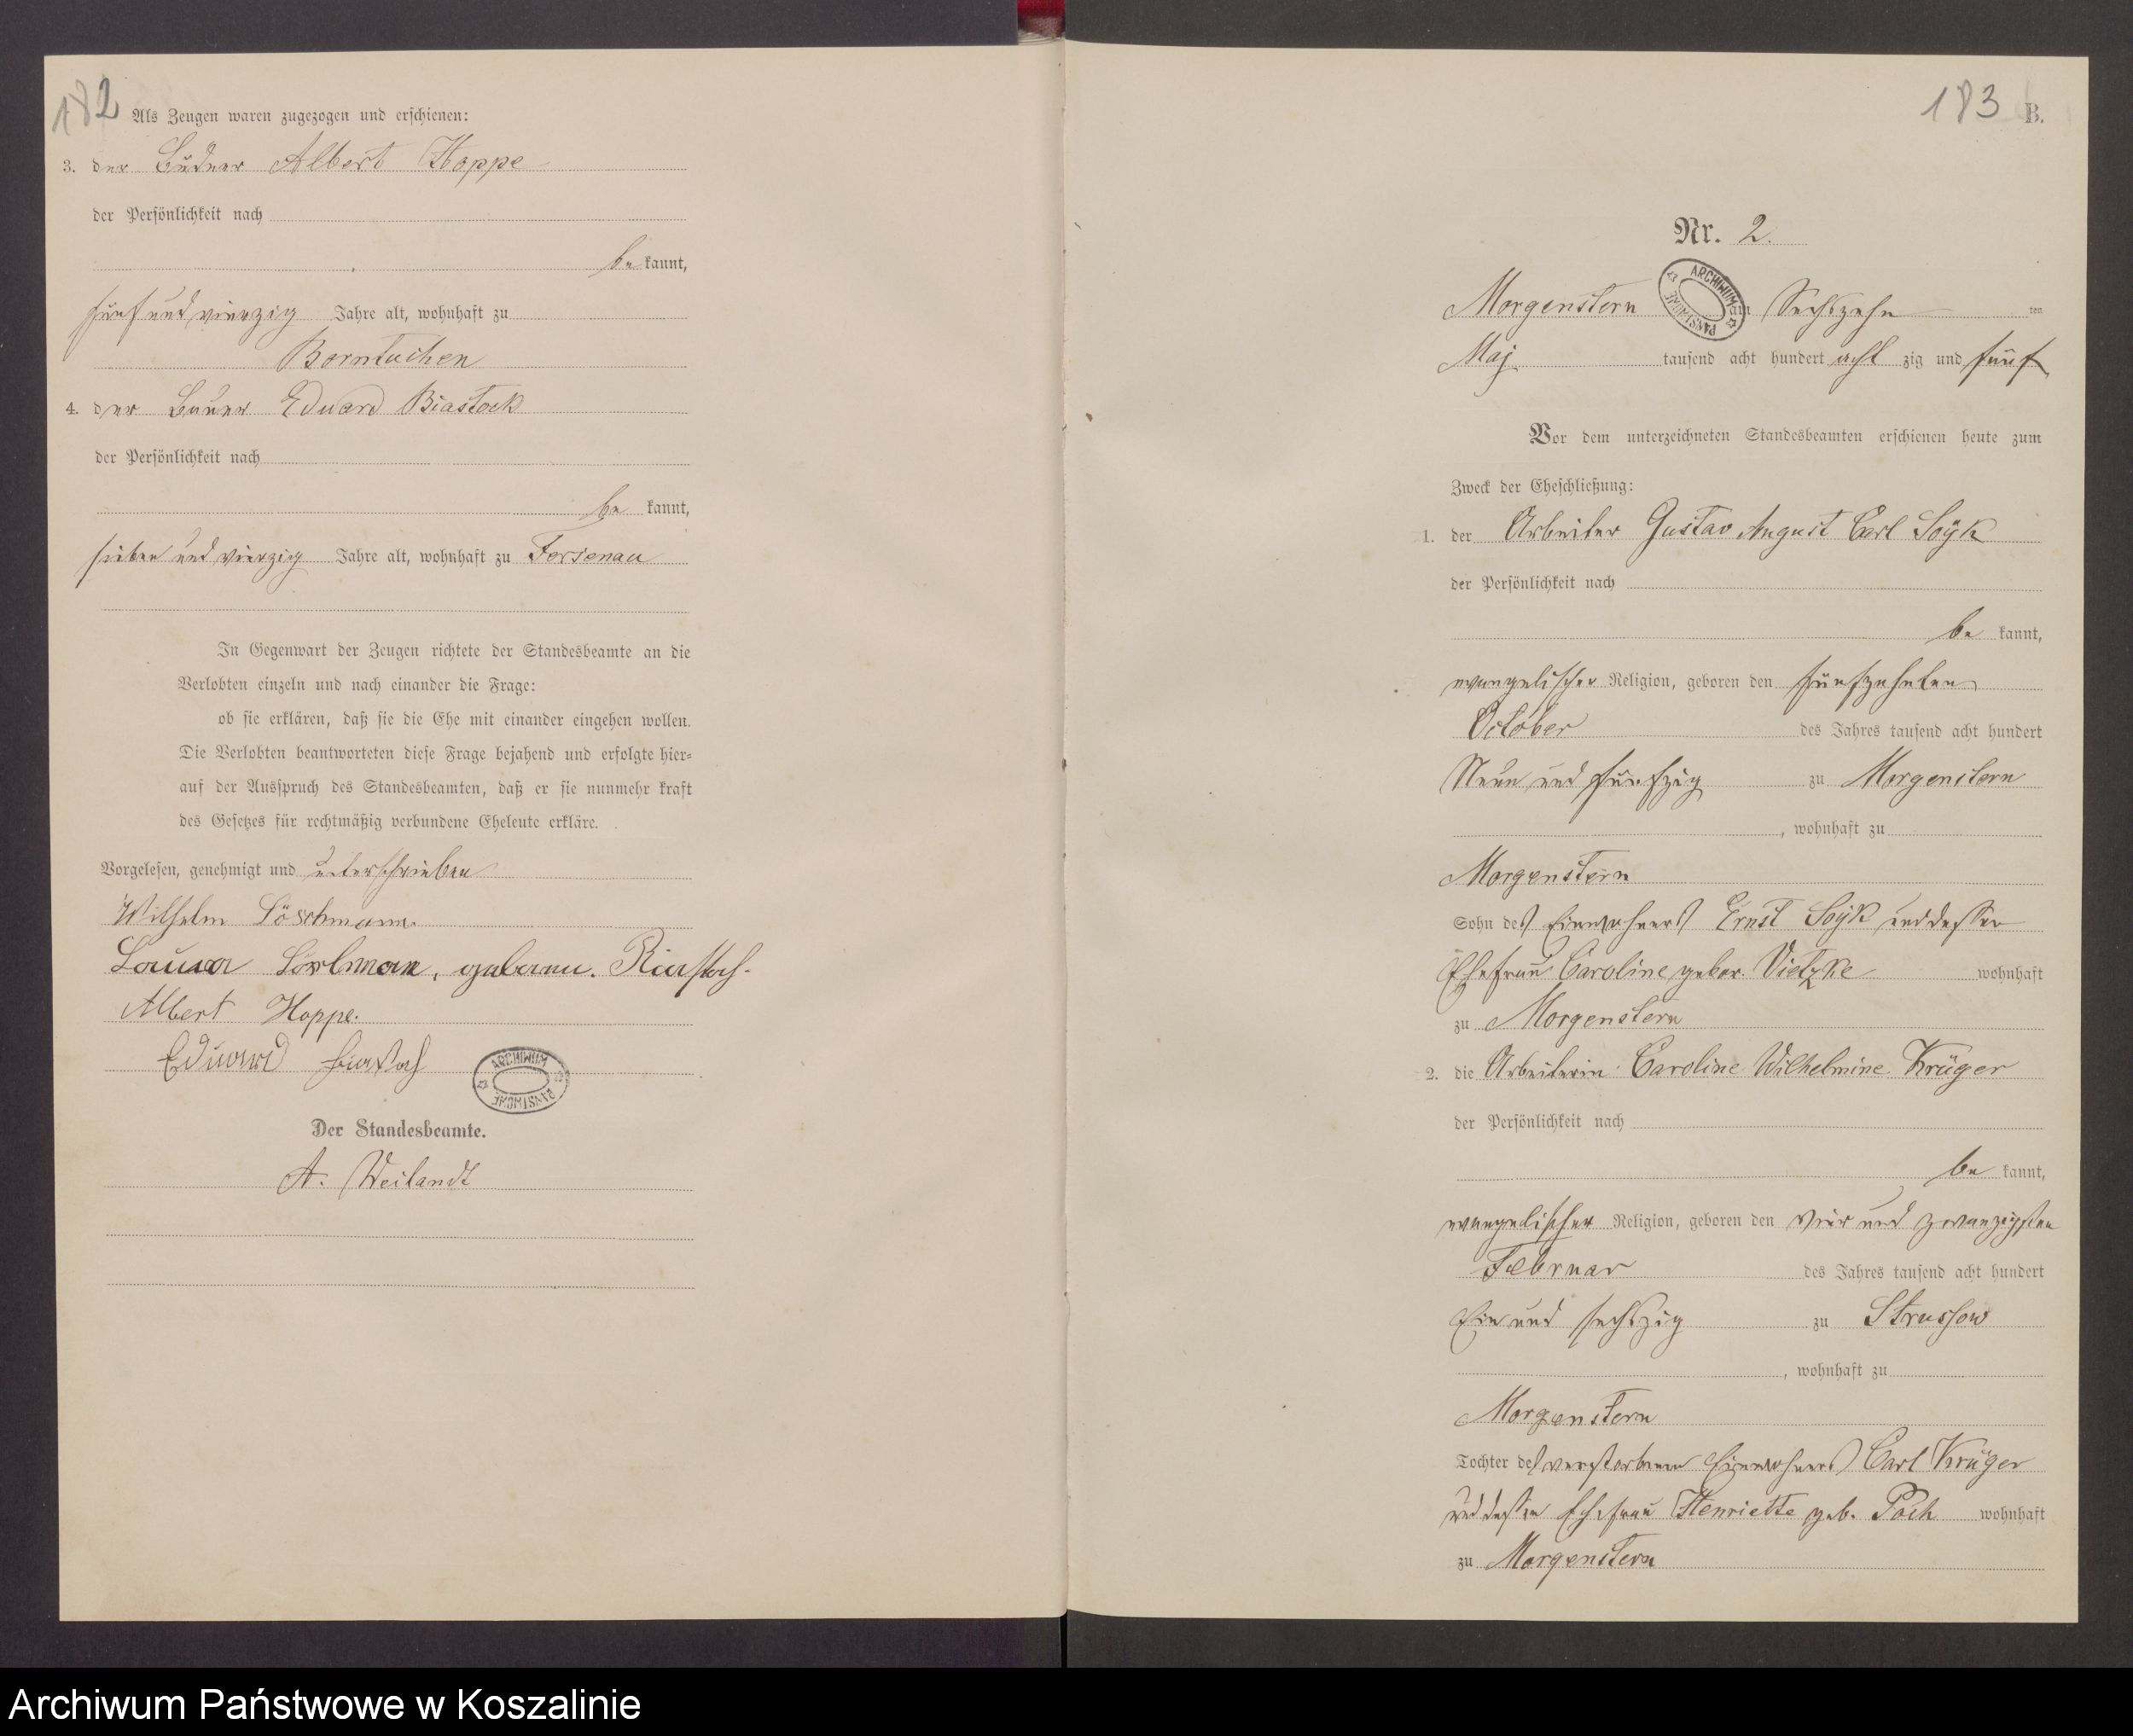 182
Als Zeugen waren zugezogen und erschienen:
3. der Büdner Albert Hoppe
der Persönlichkeit nach
be kannt,
fünf und vierzig Jahre alt, wohnhaft zu
Borntuchen
4. der Bauer Eduard Biastock
der Persönlichkeit nach
be kannt,
sieben und vierzig Jahre alt, wohnhaft zu Fersenau
In Gegenwart der Zeugen richtete der Standesbeamte an die
Verlobten einzeln und nach einander die Frage:
ob sie erklären, daß sie die Ehe mit einander eingehen wollen.
Die Verlobten beantworteten diese Frage bejahend und erfolgte hier-
auf der Ausspruch des Standesbeamten, daß er sie nunmehr kraft
des Gesetzes für rechtmäßig verbundene Eheleute erkläre.
Vorgelesen, genehmigt und unterschrieben
Wilhelm Löschmann
geboren.
Albert Hoppe.
Eduard Biastoch
ARCHIWUM PAŃSTWOWE
Der Standesbeamte.
A. Weilandt
183 B.
Nr. 2.
Morgenstern am Sechszehn ten
ARCHIWUM PAŃSTWOWE
Maj tausend acht hundert acht zig und fünf
Vor dem unterzeichneten Standesbeamten erschienen heute zum
Zweck der Eheschließung:
1. der Arbeiter Gustav August Carl Soÿk
der Persönlichkeit nach
be kannt,
evangelischer Religion, geboren den fünfzehnten
October des Jahres tausend acht hundert
Neun und fünfzig zu Morgenstern
, wohnhaft zu
Morgenstern
Sohn des Einwohners Ernst Soÿk und dessen
Ehefrau Caroline gebor. Vietzke wohnhaft
zu Morgenstern
2. die Arbeiterin Caroline Wilhelmine Krüger
der Persönlichkeit nach
be kannt,
evangelischer Religion, geboren den vier und zwanzigsten
Februar des Jahres tausend acht hundert
Ein und sechszig zu Strussow
, wohnhaft zu
Morgenstern
Tochter des verstorbenen Einwohners Carl Krüger
und dessen Ehefrau Henriette geb. Poch wohnhaft
zu Morgenstern
Archiwum Państwowe w Koszalinie